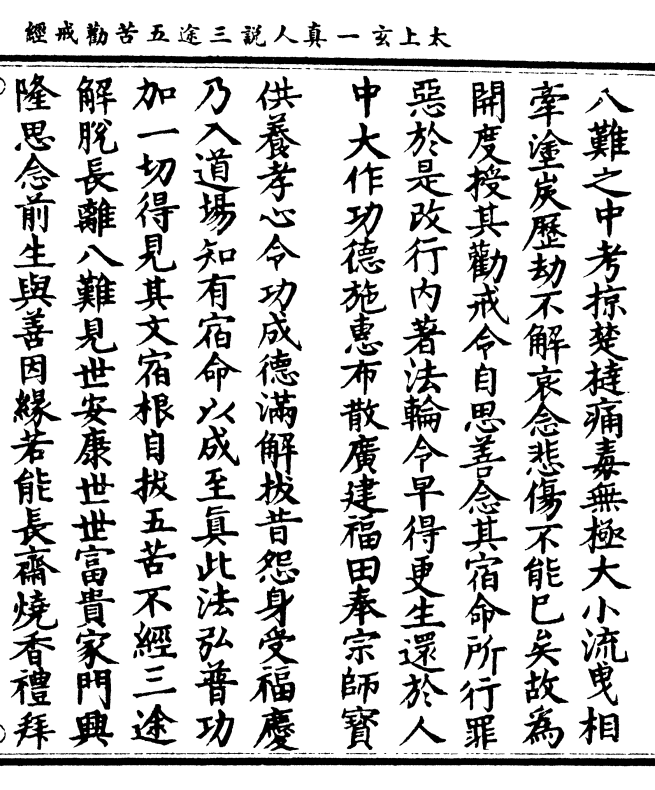 太上玄一真人說三途五苦勸戒經
八難之中考掠楚撻痛毒無極大小流曳相
牽塗炭歷劫不解哀念悲傷不能已矣故為
開度授其勸戒令自思善念其宿命所行罪
惡於是改行內著法輪令早得更生還於人
中大作功德施惠布散廣建福田奉宗師寶
供養孝心令功成德滿解拔昔怨身受福慶
乃入道場知有宿命以成至真此法弘普功
加一切得見其文宿根自拔五苦不經三途
解脫長離八難見世安康世世富貴家門興
隆思念前生與善因緣若能長齋燒香禮拜